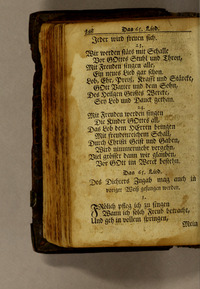 Das 65. Lied.
Jeder wird freuen sich.
23.
Wir werden stäts mit Schalle
Vor GOttes Stuhl und Thron,
Mit Freuden singen alle,
Ein neues Lied gar schon.
Lob, Ehr, Preiß, Krafft und Stärcke,
GOtt Vatter und dem Sohn,
Des Heiligen Geistes Wercke,
Sey Lob und Danck gethan.
24.
Mit Freuden werden singen
Die Kinder GOttes all,
Das Lob dem HErren bringen
Mit freudenreichem Schall,
Durch Christi Geist und Gaben,
Wird nimmermehr vergehn.
Viel grösser dann wir glauben,
Vor GOtt im Werck bestehn.
Das 65. Lied.
Des Dichters Zugab mag auch in
voriger Weiß gesungen werden.
1.
FRölich pfleg ich zu singen
Wann ich solch Freud betracht,
Und geh in vollem springen,
Mein